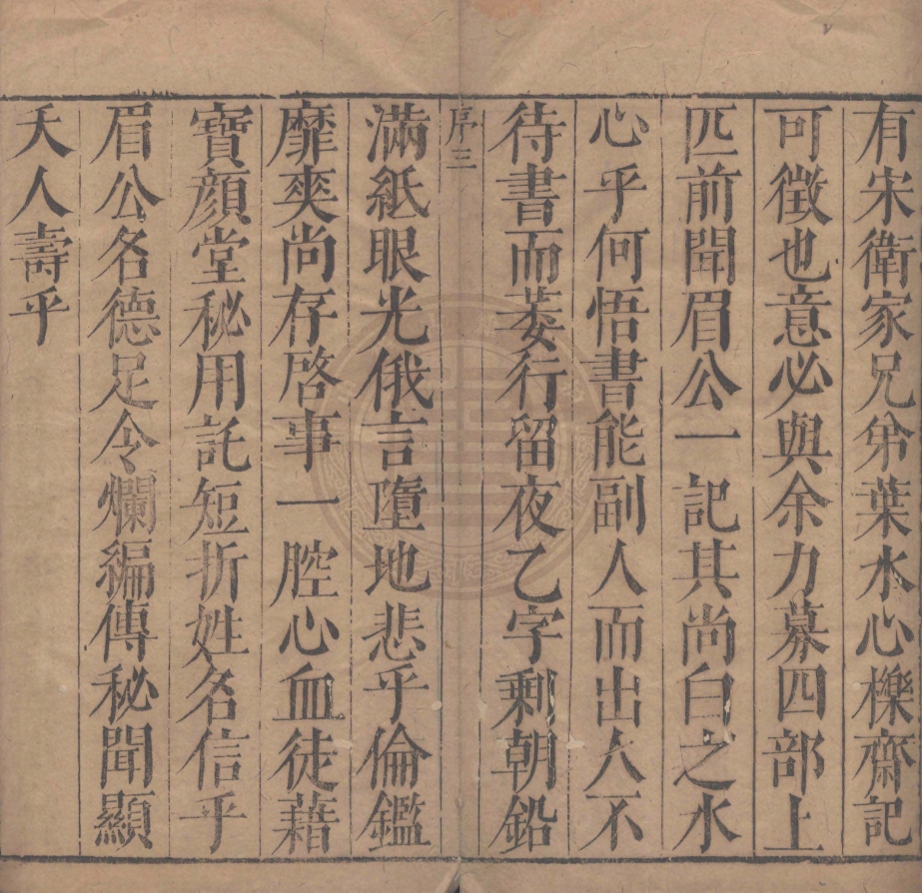 有宋衛家兄弟葉水心櫟齋記
可徵也意必與余力募四部上
匹前聞眉公一記其尚白之水
心乎何悟書能副人而出人不
待書而萎行留夜乙字剩朝鉛
序三
滿紙眼光俄言墮地悲乎倫鑑
靡爽尚存啓事一腔心血徒藉
寶顏堂秘用託短折姓名信乎
眉公名德足令爛編傳秘聞顯
夭人壽乎